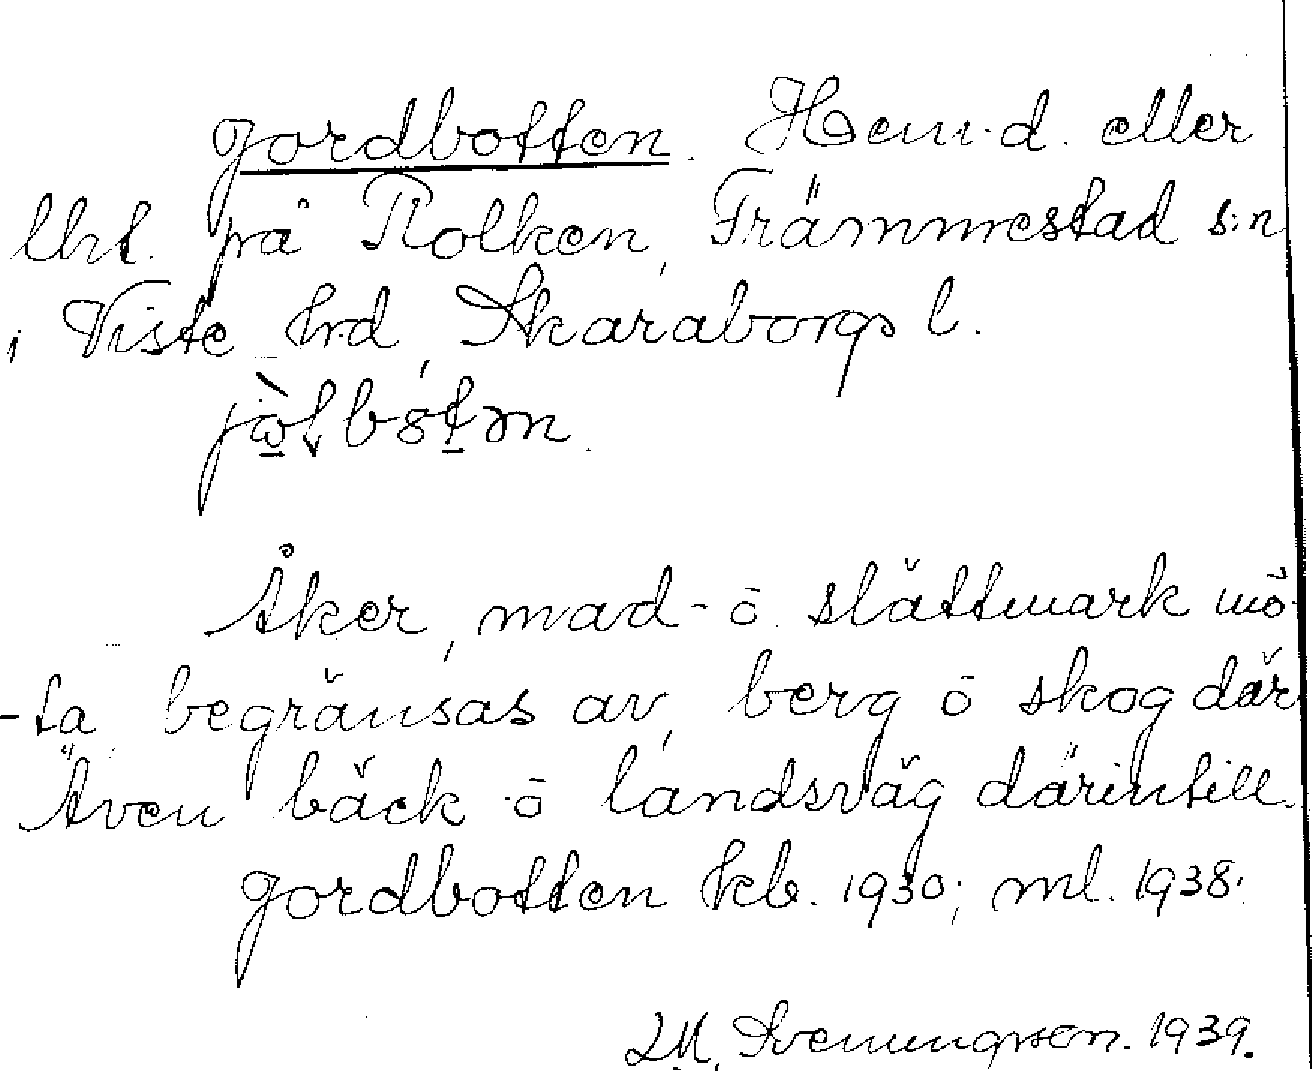 Gordbotten. Hem.d. eller
lht. på Rolken, Främmestad s:n
i Viste hrd, Skaraborgs l.
Åker, mad- o. slättmark mö-
-ta begränsas av, berg o skog där
Även bäck o landsväg därintill.
Gordbotten kb. 1930; ml. 1938.
Sveningsson. 1939.